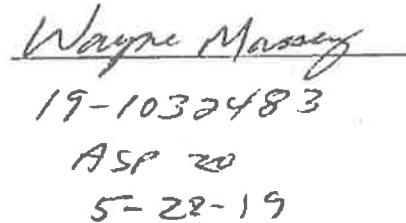 Wayne Massey
19-1032483
ASP 20
5-28-19